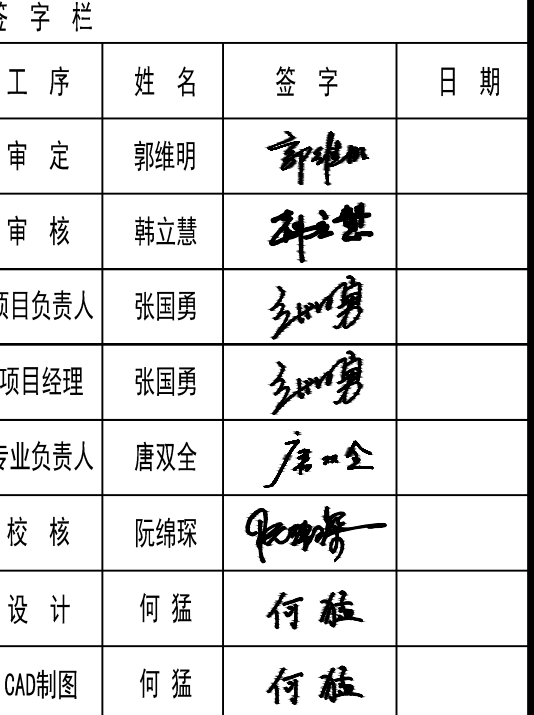 签 字 栏
工 序 姓 名 签 字 日 期
审 定 郭维明 郭维明
审 核 韩立慧 韩立慧
项目负责人 张国勇 张国勇
项目经理 张国勇 张国勇
专业负责人 唐双全 唐双全
校 核 阮绵琛 阮绵琛
设 计 何 猛 何 猛
CAD制图 何 猛 何 猛